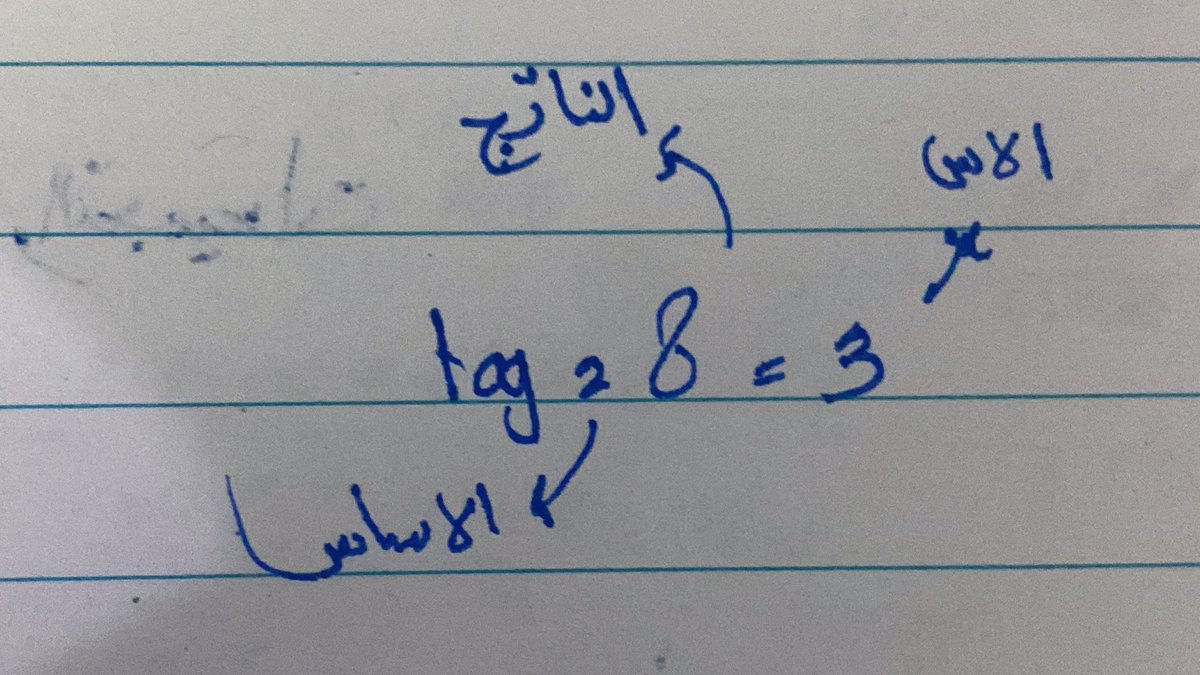 الناتج
الاس
log 2 8 = 3
الاساس